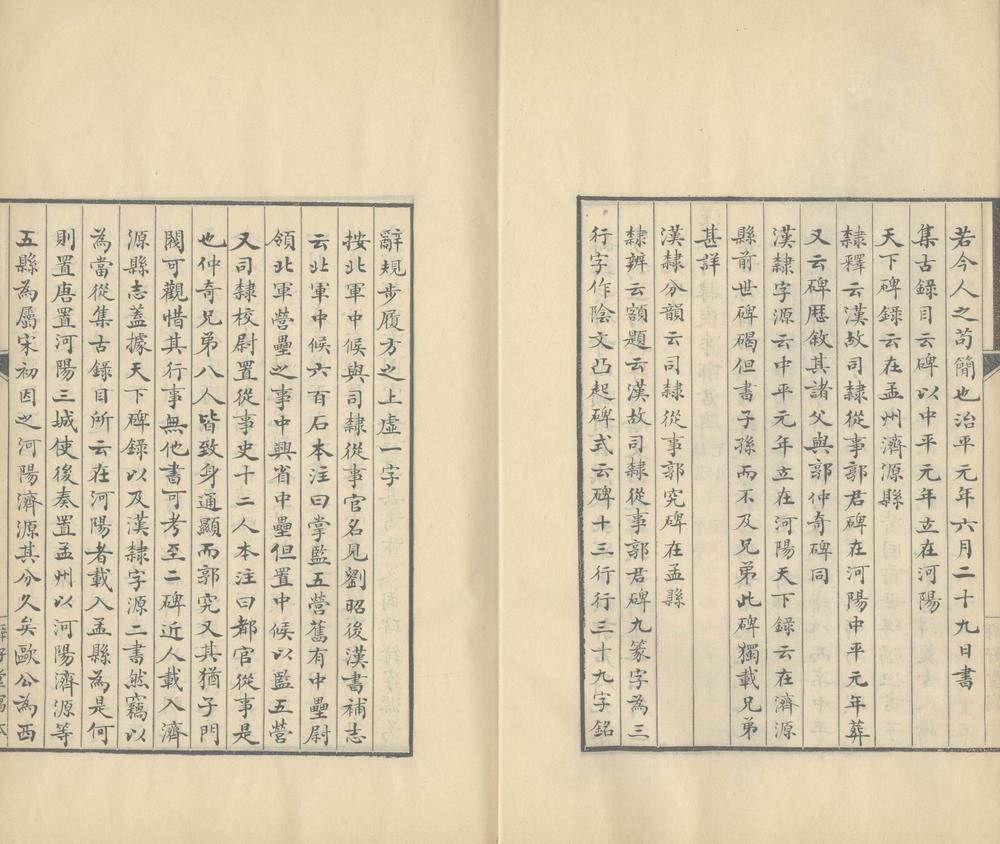 若今人之苟簡也治平元年六月二十九日書
集古錄目云碑以中平元年立在河陽
天下碑錄云在孟州濟源縣
隸釋云漢故司隸從事郭君碑在河陽中平元年葬
又云碑歷敘其諸父與郭仲奇碑同
漢隸字源云中平元年立在河陽天下錄云在濟源
縣前世碑碣但書子孫而不及兄弟此碑獨載兄弟
甚詳
漢隸分韻云司隸從事郭究碑在孟縣
隸辨云額題云漢故司隸從事郭君碑九篆字為三
行字作陰文凸起碑式云碑十三行行三十九字銘
辭規步履方之上虛一字
按北軍中候與司隸從事官名見劉昭後漢書補志
云北軍中候六百石本注曰掌監五營舊有中壘尉
領北軍營壘之事中興省中壘但置中候以監五營
又司隸校尉置從事史十二人本注曰都官從事是
也仲奇兄弟八人皆致身通顯而郭究又其猶子門
閥可觀惜其行事無他書可考至二碑近人載入濟
源縣志蓋據天下碑錄以及漢隸字源二書然竊以
為當從集古錄目所云在河陽者載入孟縣為是何
則置唐置河陽三城使後奏置孟州以河陽濟源等
五縣為屬宋初因之河陽濟源其分久矣歐公為西